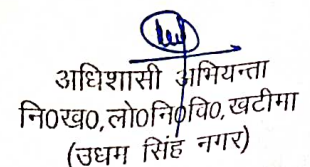 अधिशासी अभियन्ता
नि0ख0,लो0नि0वि0,खटीमा
(उधम सिंह नगर)